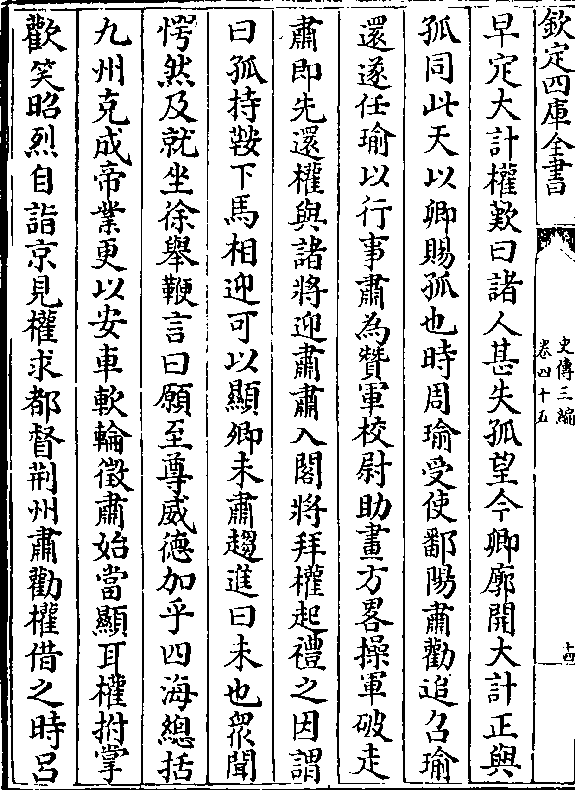 欽定四庫全書
史傳三編
卷四十五
十四
早定大計權歎曰諸人甚失孤望今卿廓開大計正與
孤同此天以卿賜孤也時周瑜受使鄱陽肅勸追召瑜
還遂任瑜以行事肅為贊軍校尉助畫方畧操軍破走
肅即先還權與諸將迎肅肅入閤將拜權起禮之因謂
曰孤持鞍下馬相迎可以顯卿未肅趨進曰未也衆聞
愕然及就坐徐舉鞭言曰願至尊威德加乎四海總括
九州克成帝業更以安車軟輪徵肅始當顯耳權拊掌
歡笑昭烈自詣京見權求都督荆州肅勸權借之時吕